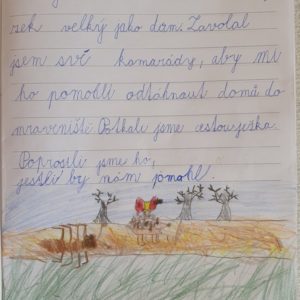 rek velký jako dům. Zavolal
jsem své kamarády, aby mi
ho pomohli odtáhnout domů do
mraveniště. Potkali jsme cestou ježka.
Poprosili jsme ho,
jestli by nám pmohl.